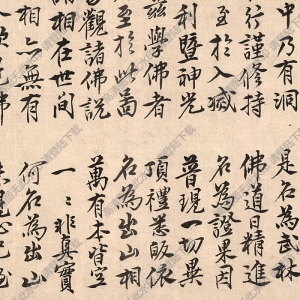 中乃有洞
行謹修持
至於入滅
利暨神光
兹學佛者
至於此圖
觀諸佛說
相在世间
相亦無有
是名為武林
佛道日精進
名為證果因
普現一切異
頂禮 皈依
名為出山相
萬有本皆空
一一非真實
何名為出山